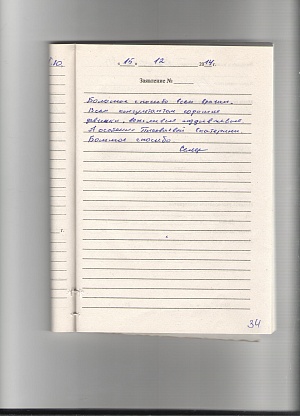 10.
"15" 12 2014г.
Заявление №
Большое спасибо всем врачам.
Всем консультантам хорошие
девушки, вежливые
А особенно Екатерине.
Большое спасибо.
г.
34